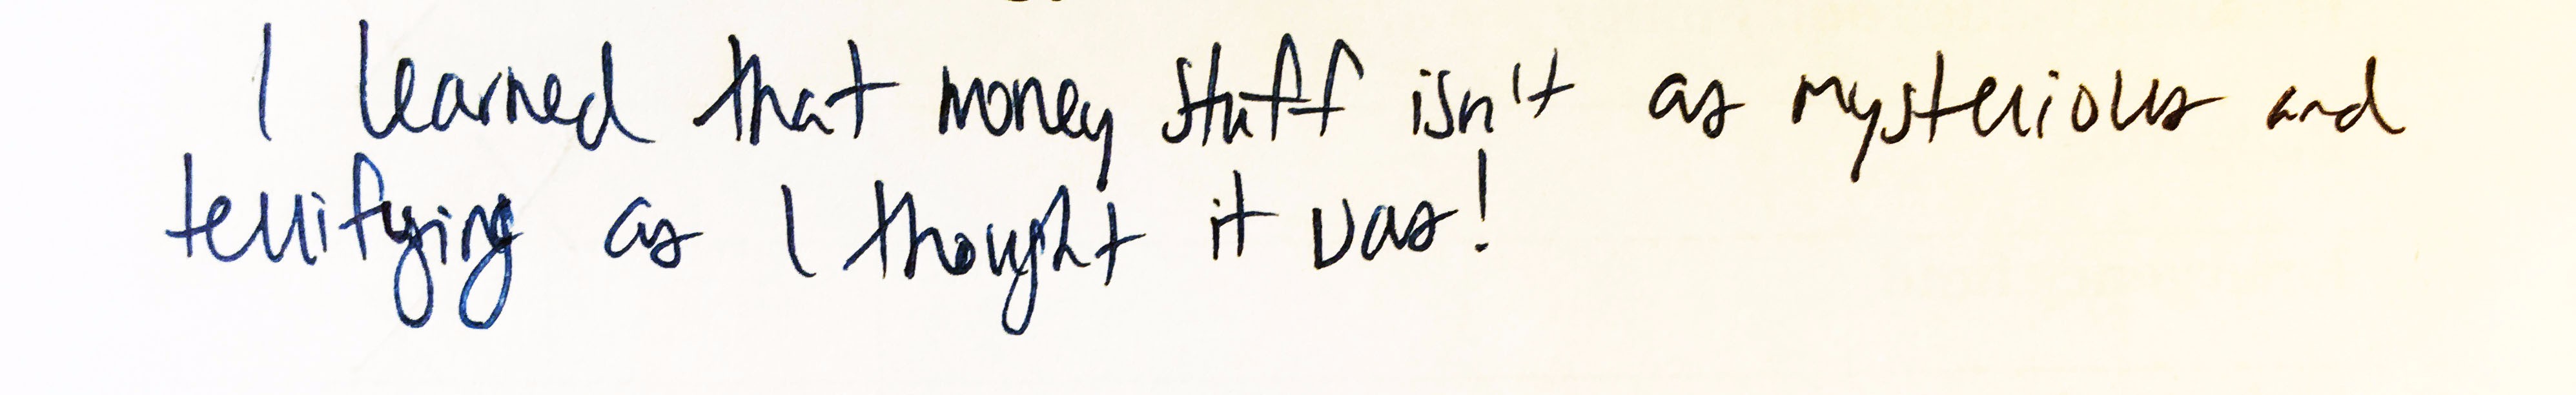 I learned that money stuff isn't as mysterious and
terrifying as I thought it was!